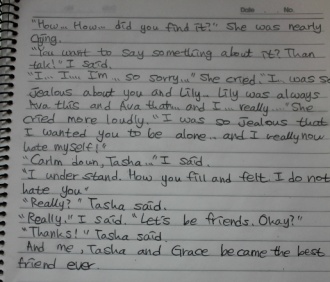 Date No.
"How... How... did you find it?" She was nearly
crying.
"You want to say something about it? Than
talk!" I said.
"I... I.... I'm... so sorry..." She cried. "I was so
jealous about you and Lily... Lily was always
Ava this and Ava that... and I... really..." She
cried more loudly. "I was so jealous that
I wanted you to be alone... and I really now
hate myself!"
"Carlm down, Tasha..." I said.
"I under stand. How you fill and felt. I do not
hate you"
"Really?" Tasha said.
"Really." I said. "Let's be friends. Okay?"
"Thanks!" Tasha said.
And me, Tasha and Grace became the best
friend ever.